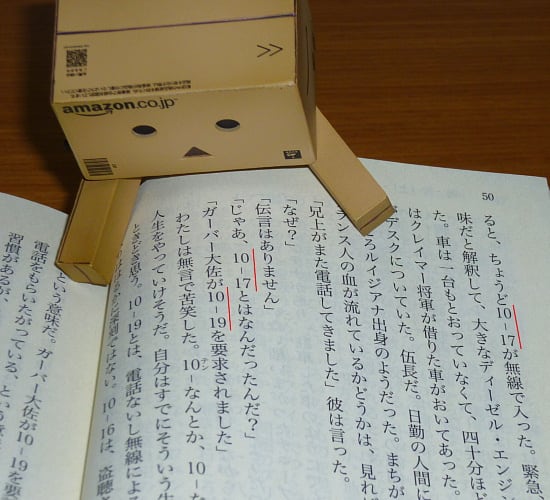 amazon.co.jp
50
ると、ちょうど10-17が無線で入った。緊急
味だと解釈して、大きなディーゼル・エンジ
た。車は一台もとおっていなくて、四十分ほ
はクレイマー将軍が借りた車がおいてあった。
がデスクについていた。伍長だ。日勤の人間に
るルイジアナ出身のようだった。まちが
ランス人の血が流れているかどうかは、見れ
「兄上がまた電話してきました」彼は言った。
「なぜ？」
「伝言はありません」
「じゃあ、10-17とはなんだったんだ？」
「ガーバー大佐が10-19を要求されました」
わたしは無言で苦笑した。10-なんとか、10-な
テン
人生をやっていけそうだ。自分はすでにそういう生
ときどき思う。10-19とは、電話ないし無線による
ではない。10-16は、盗聴
という意味だ。ガーバー大佐が10-19を要
電話をもらいたがっている、という意
習慣があるが、